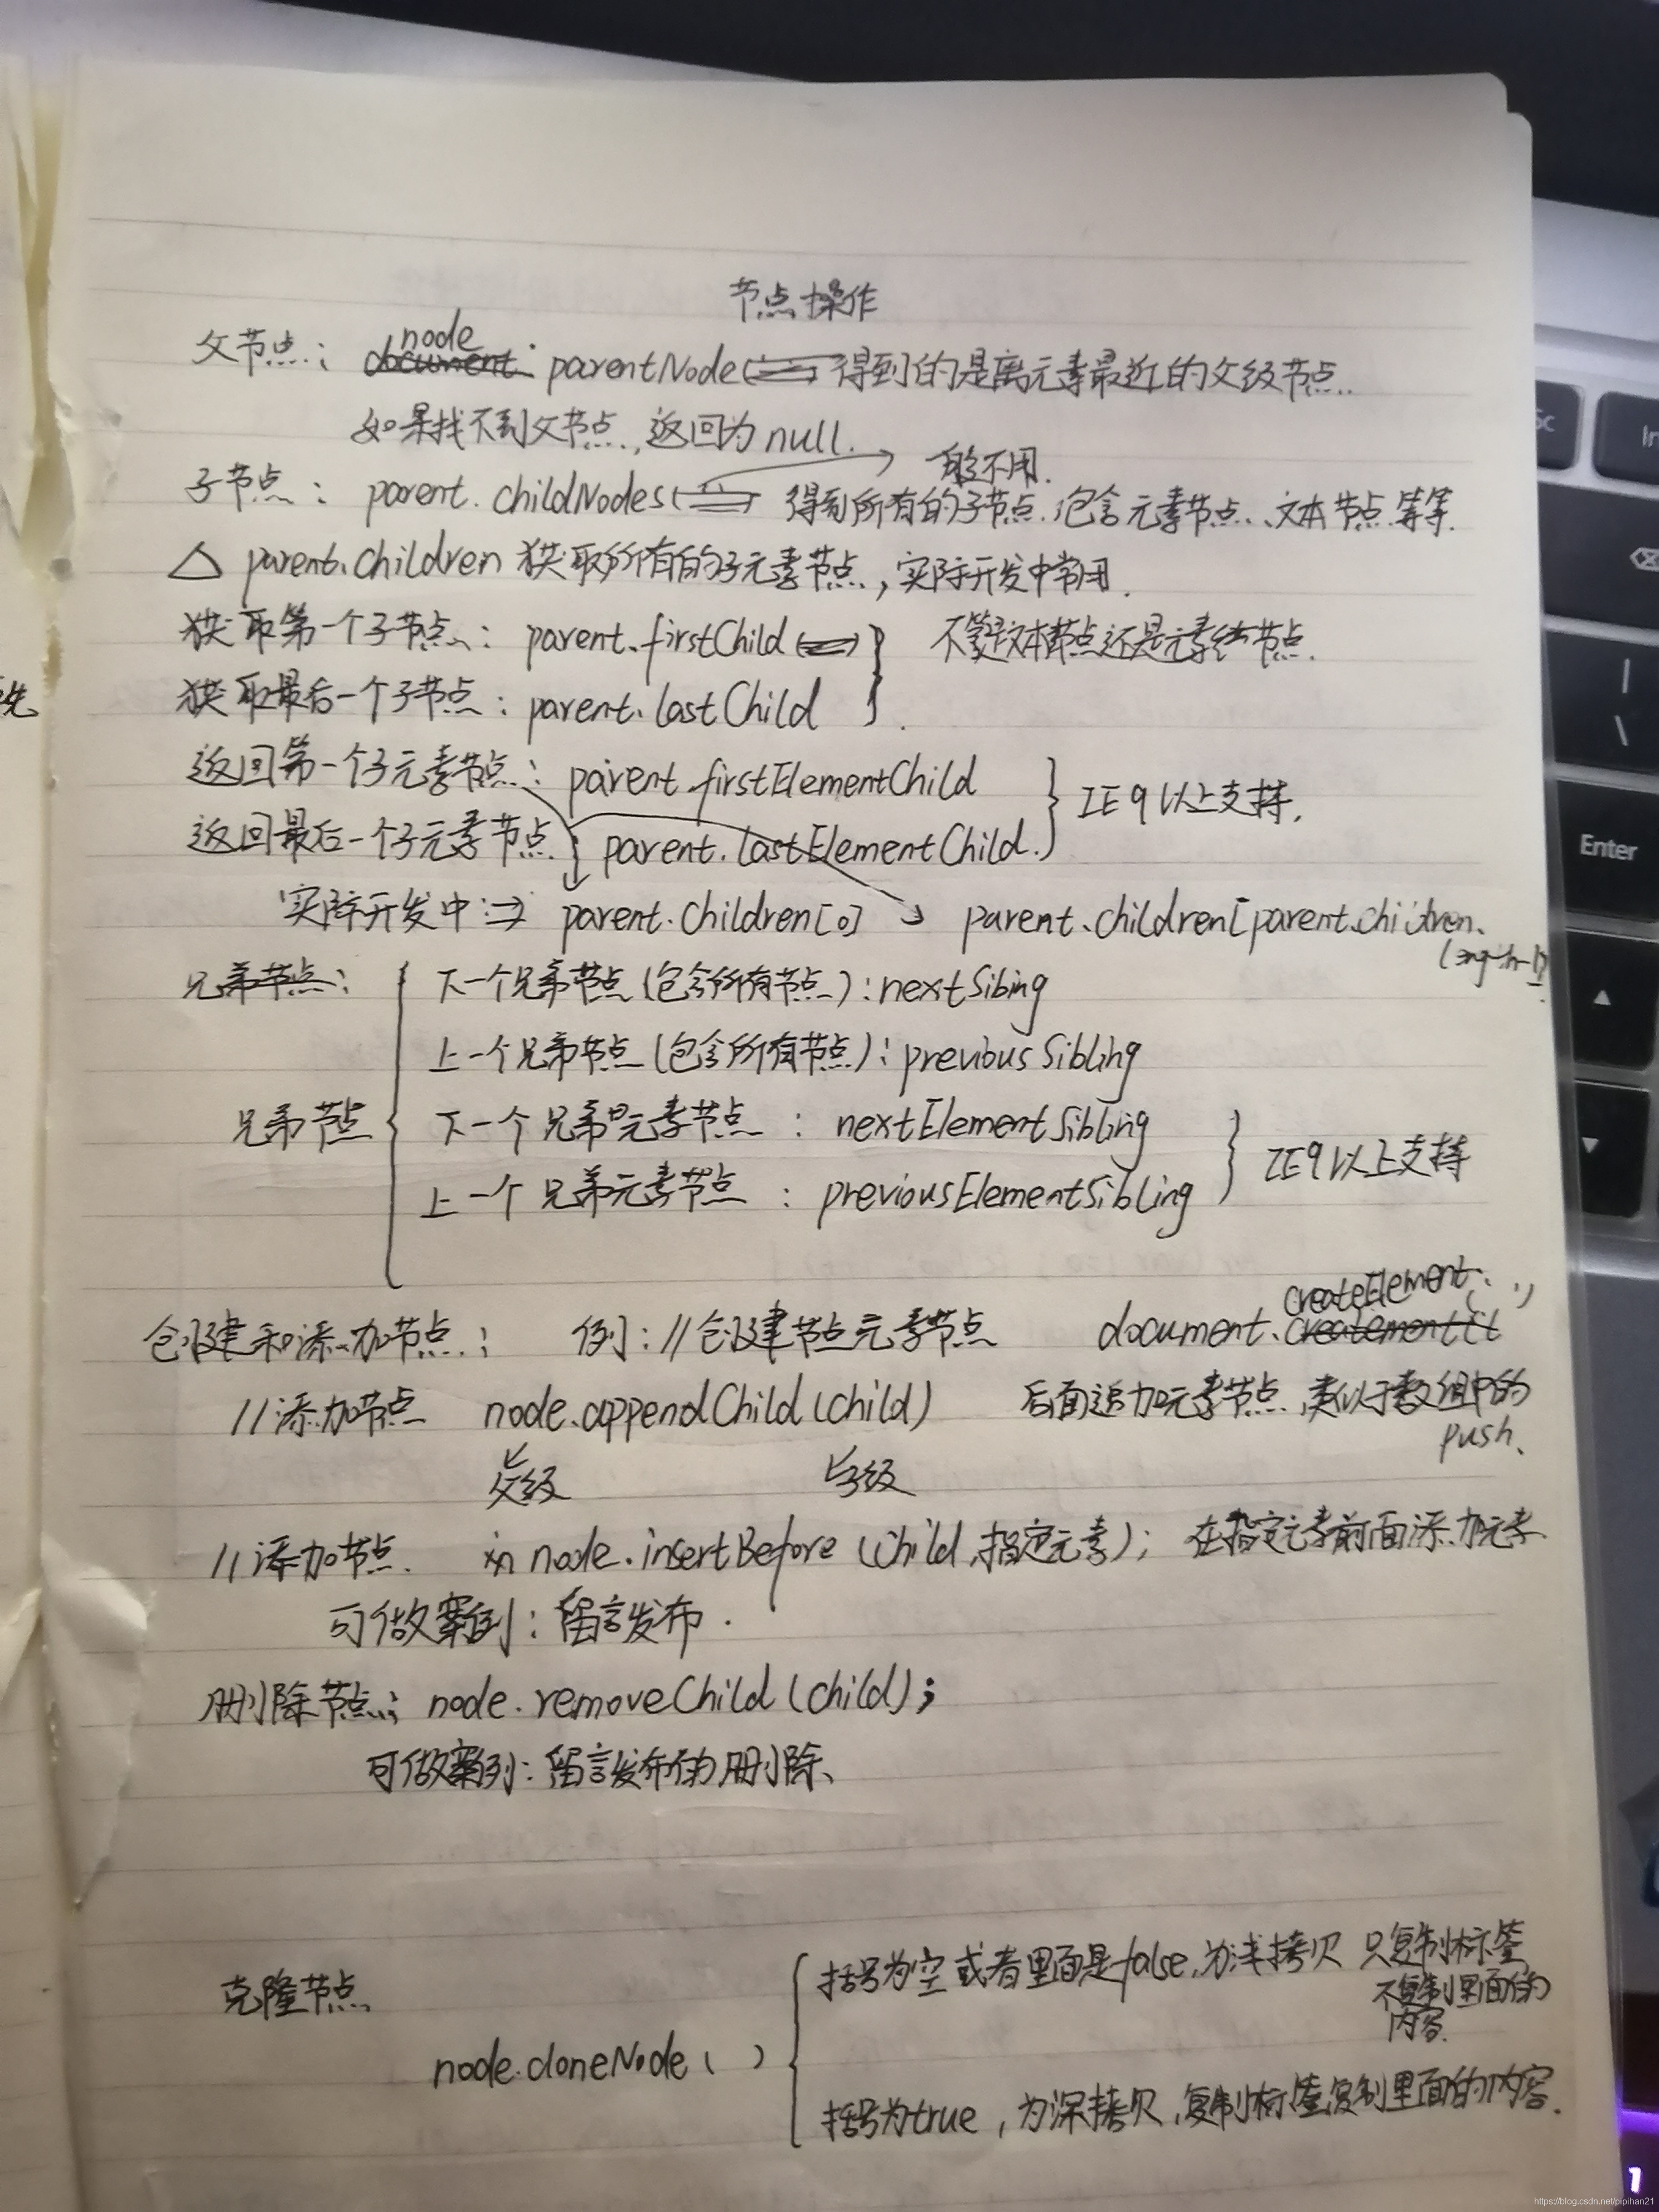 节点操作
父节点: node.parentNode 得到的是离元素最近的父级节点.
如果找不到父节点,返回为null.
般不用.
子节点: parent.childNodes 得到所有的子节点.包含元素节点、文本节点等等.
△ parent.children 获取所有的子元素节点,实际开发中常用.
获取第一个子节点: parent.firstChild } 不管是文本节点还是元素节点.
获取最后一个子节点: parent.lastChild
返回第一个子元素节点: parent.firstElementChild } IE9以上支持.
返回最后一个子元素节点: parent.lastElementChild.
实际开发中:⇒ parent.children[0] → parent.children[parent.children.
length-1].
兄弟节点: { 下一个兄弟节点(包含所有节点): nextSibing
上一个兄弟节点(包含所有节点): previousSibling
兄弟节点 下一个兄弟元素节点: nextElementSibling } IE9以上支持
上一个兄弟元素节点: previousElementSibling
创建和添加节点: 例: //创建节点元素节点 document.createElement('')
//添加节点 node.appendChild(child) 后面追加元素节点,类似于数组中的
push.
父级 子级
//添加节点. node.insertBefore(child,指定元素); 在指定元素前面添加元素
可做案例:留言发布.
删除节点: node.removeChild(child);
可做案列:留言发布的删除、
克隆节点 { 括号为空或者里面是false,为浅拷贝 只复制标签
不复制里面的
内容.
node.cloneNode( )
括号为true,为深拷贝,复制标签复制里面的内容.
Enter
https://blog.csdn.net/pipihan21